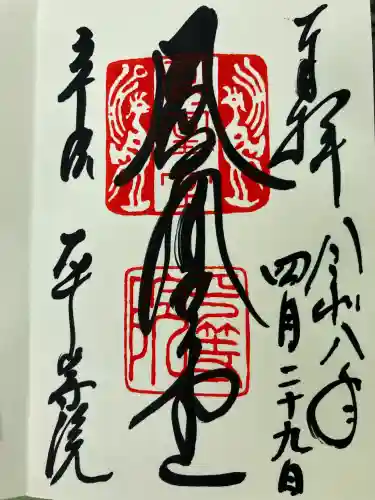 百拝
令和八年
四月二十九日
鳳凰堂
宇治
平等院